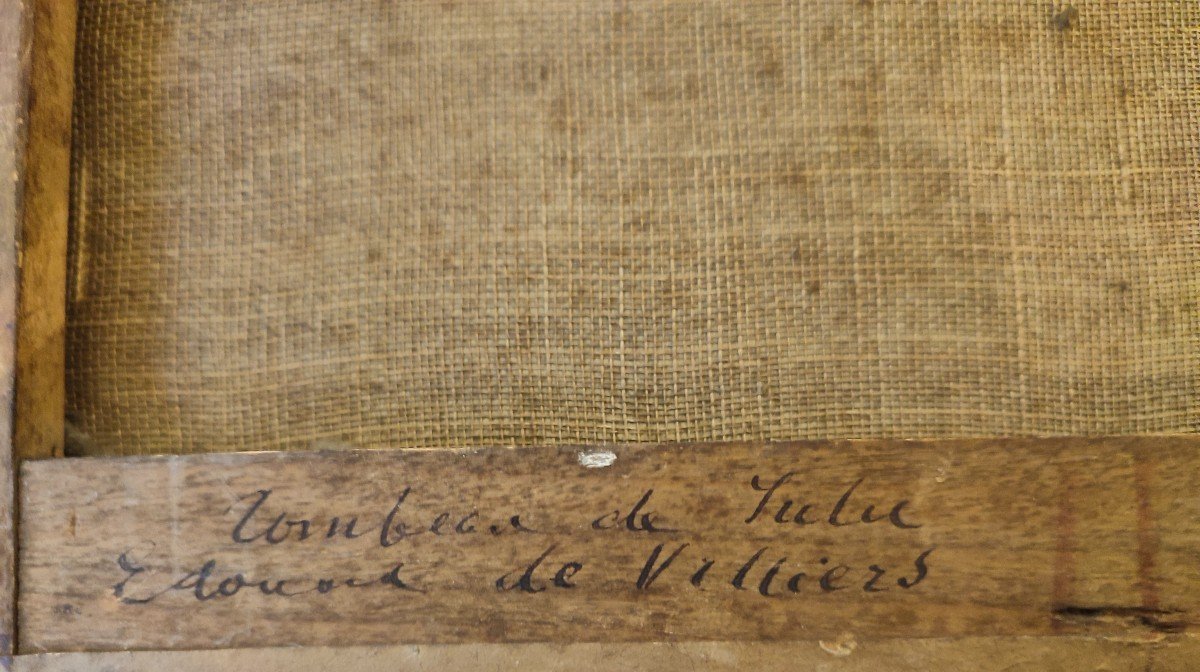 Tombeau de Julie
Edouard de Villiers